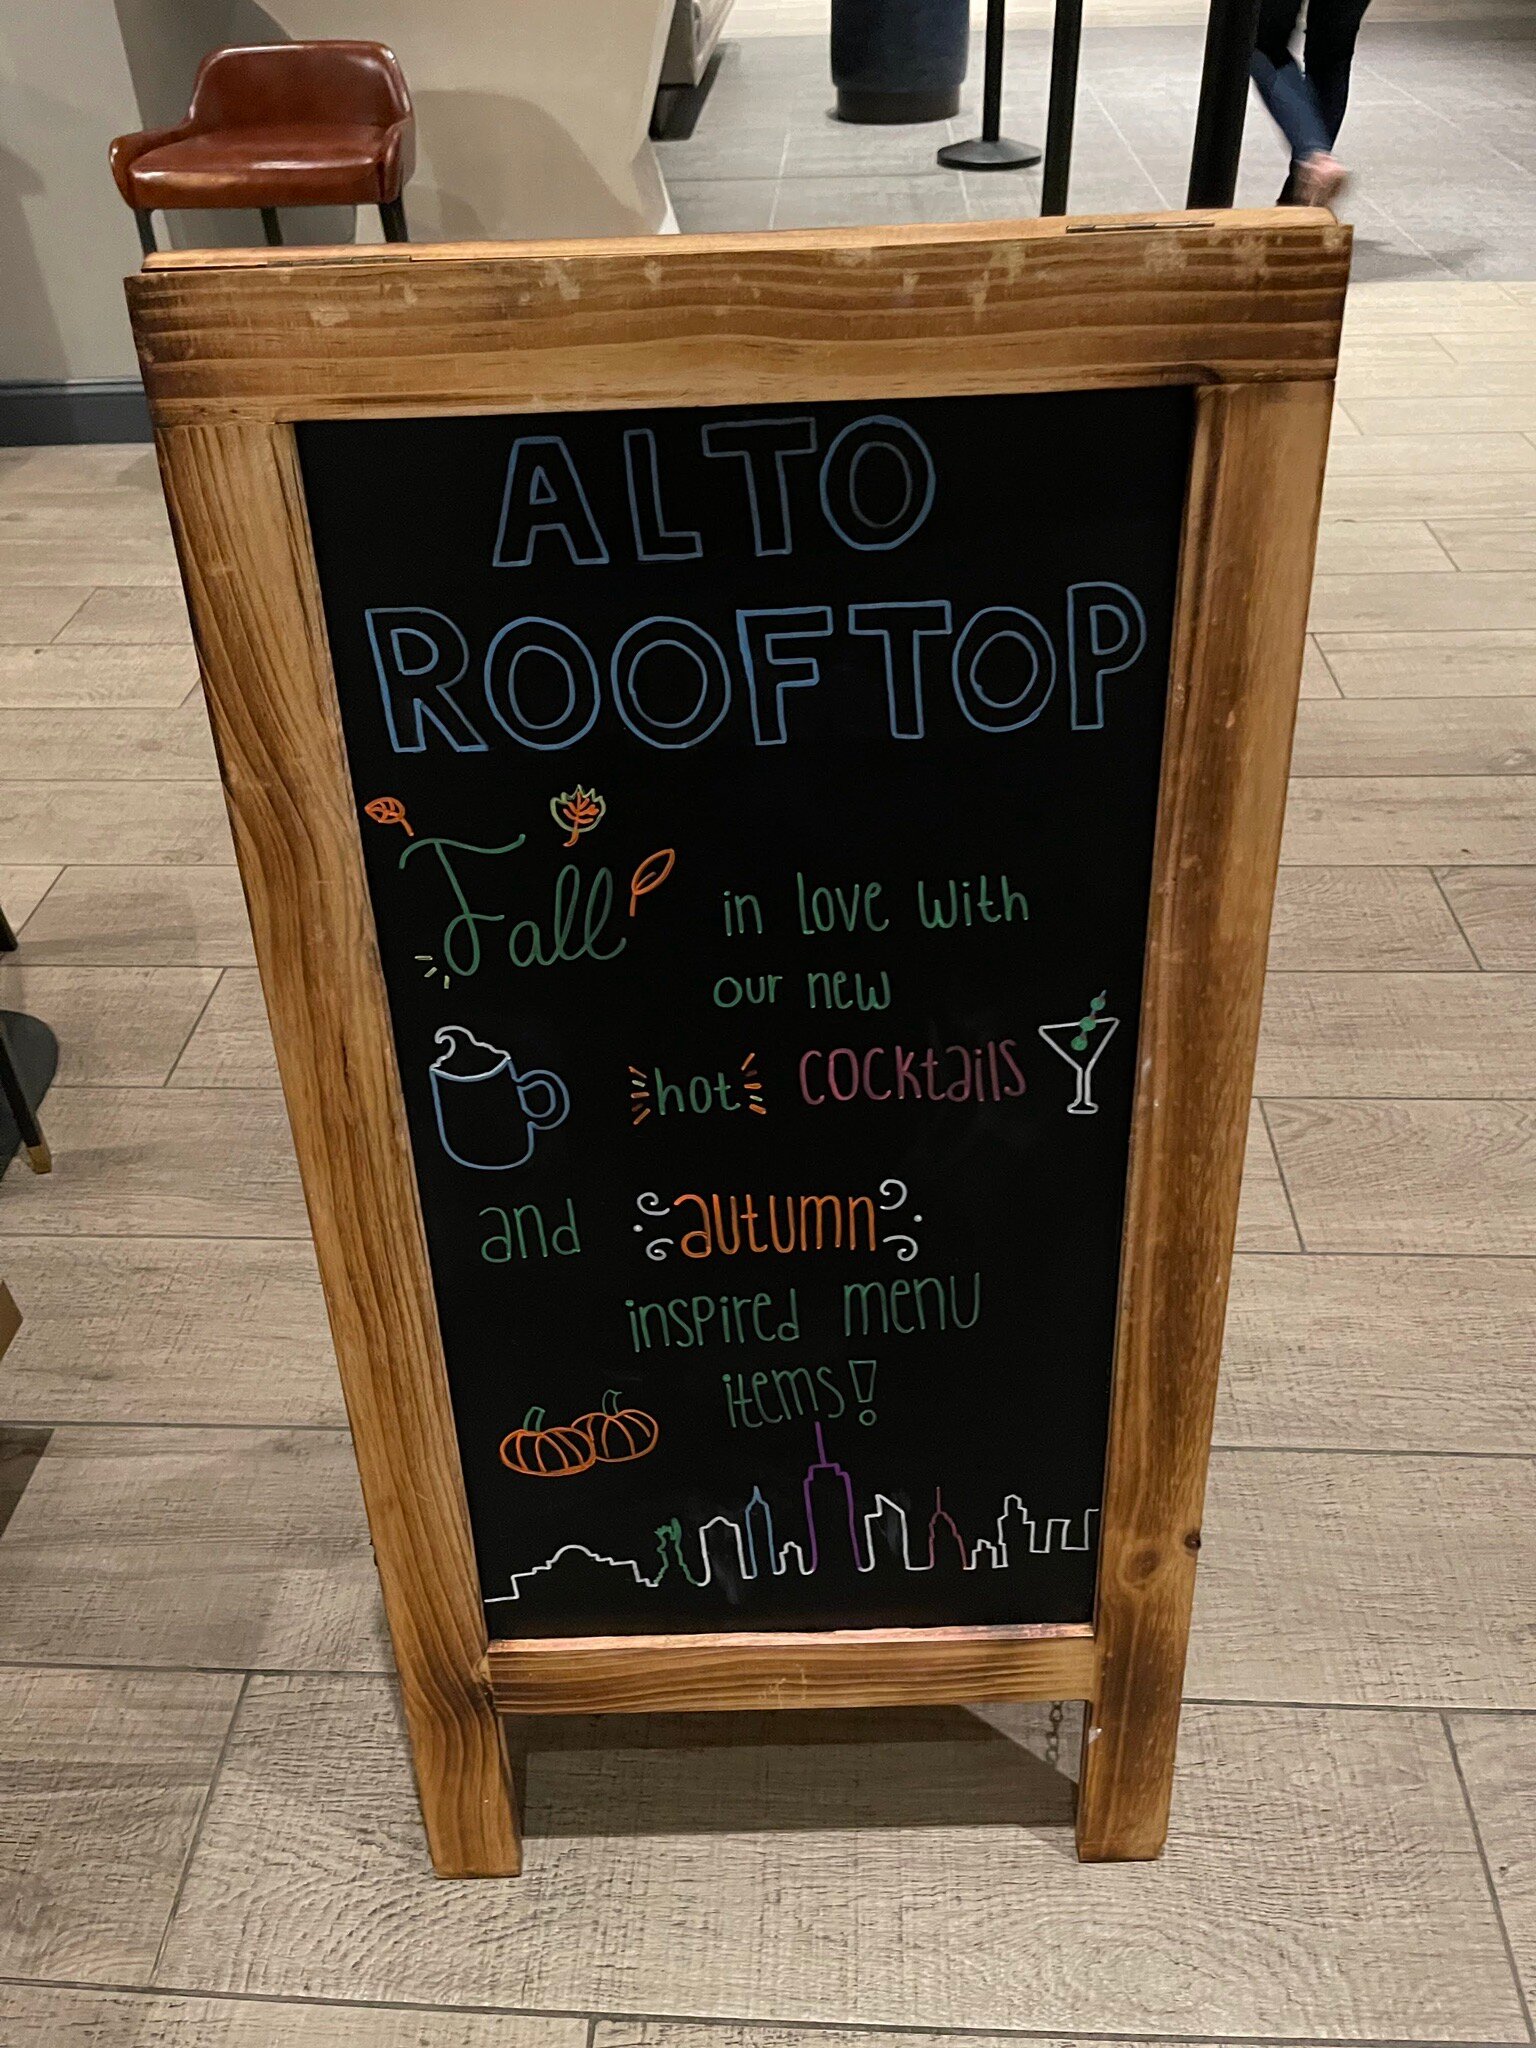 ALTO
ROOFTOP
Fall in love with
our new
hot cocktails
and autumn
inspired menu
items!